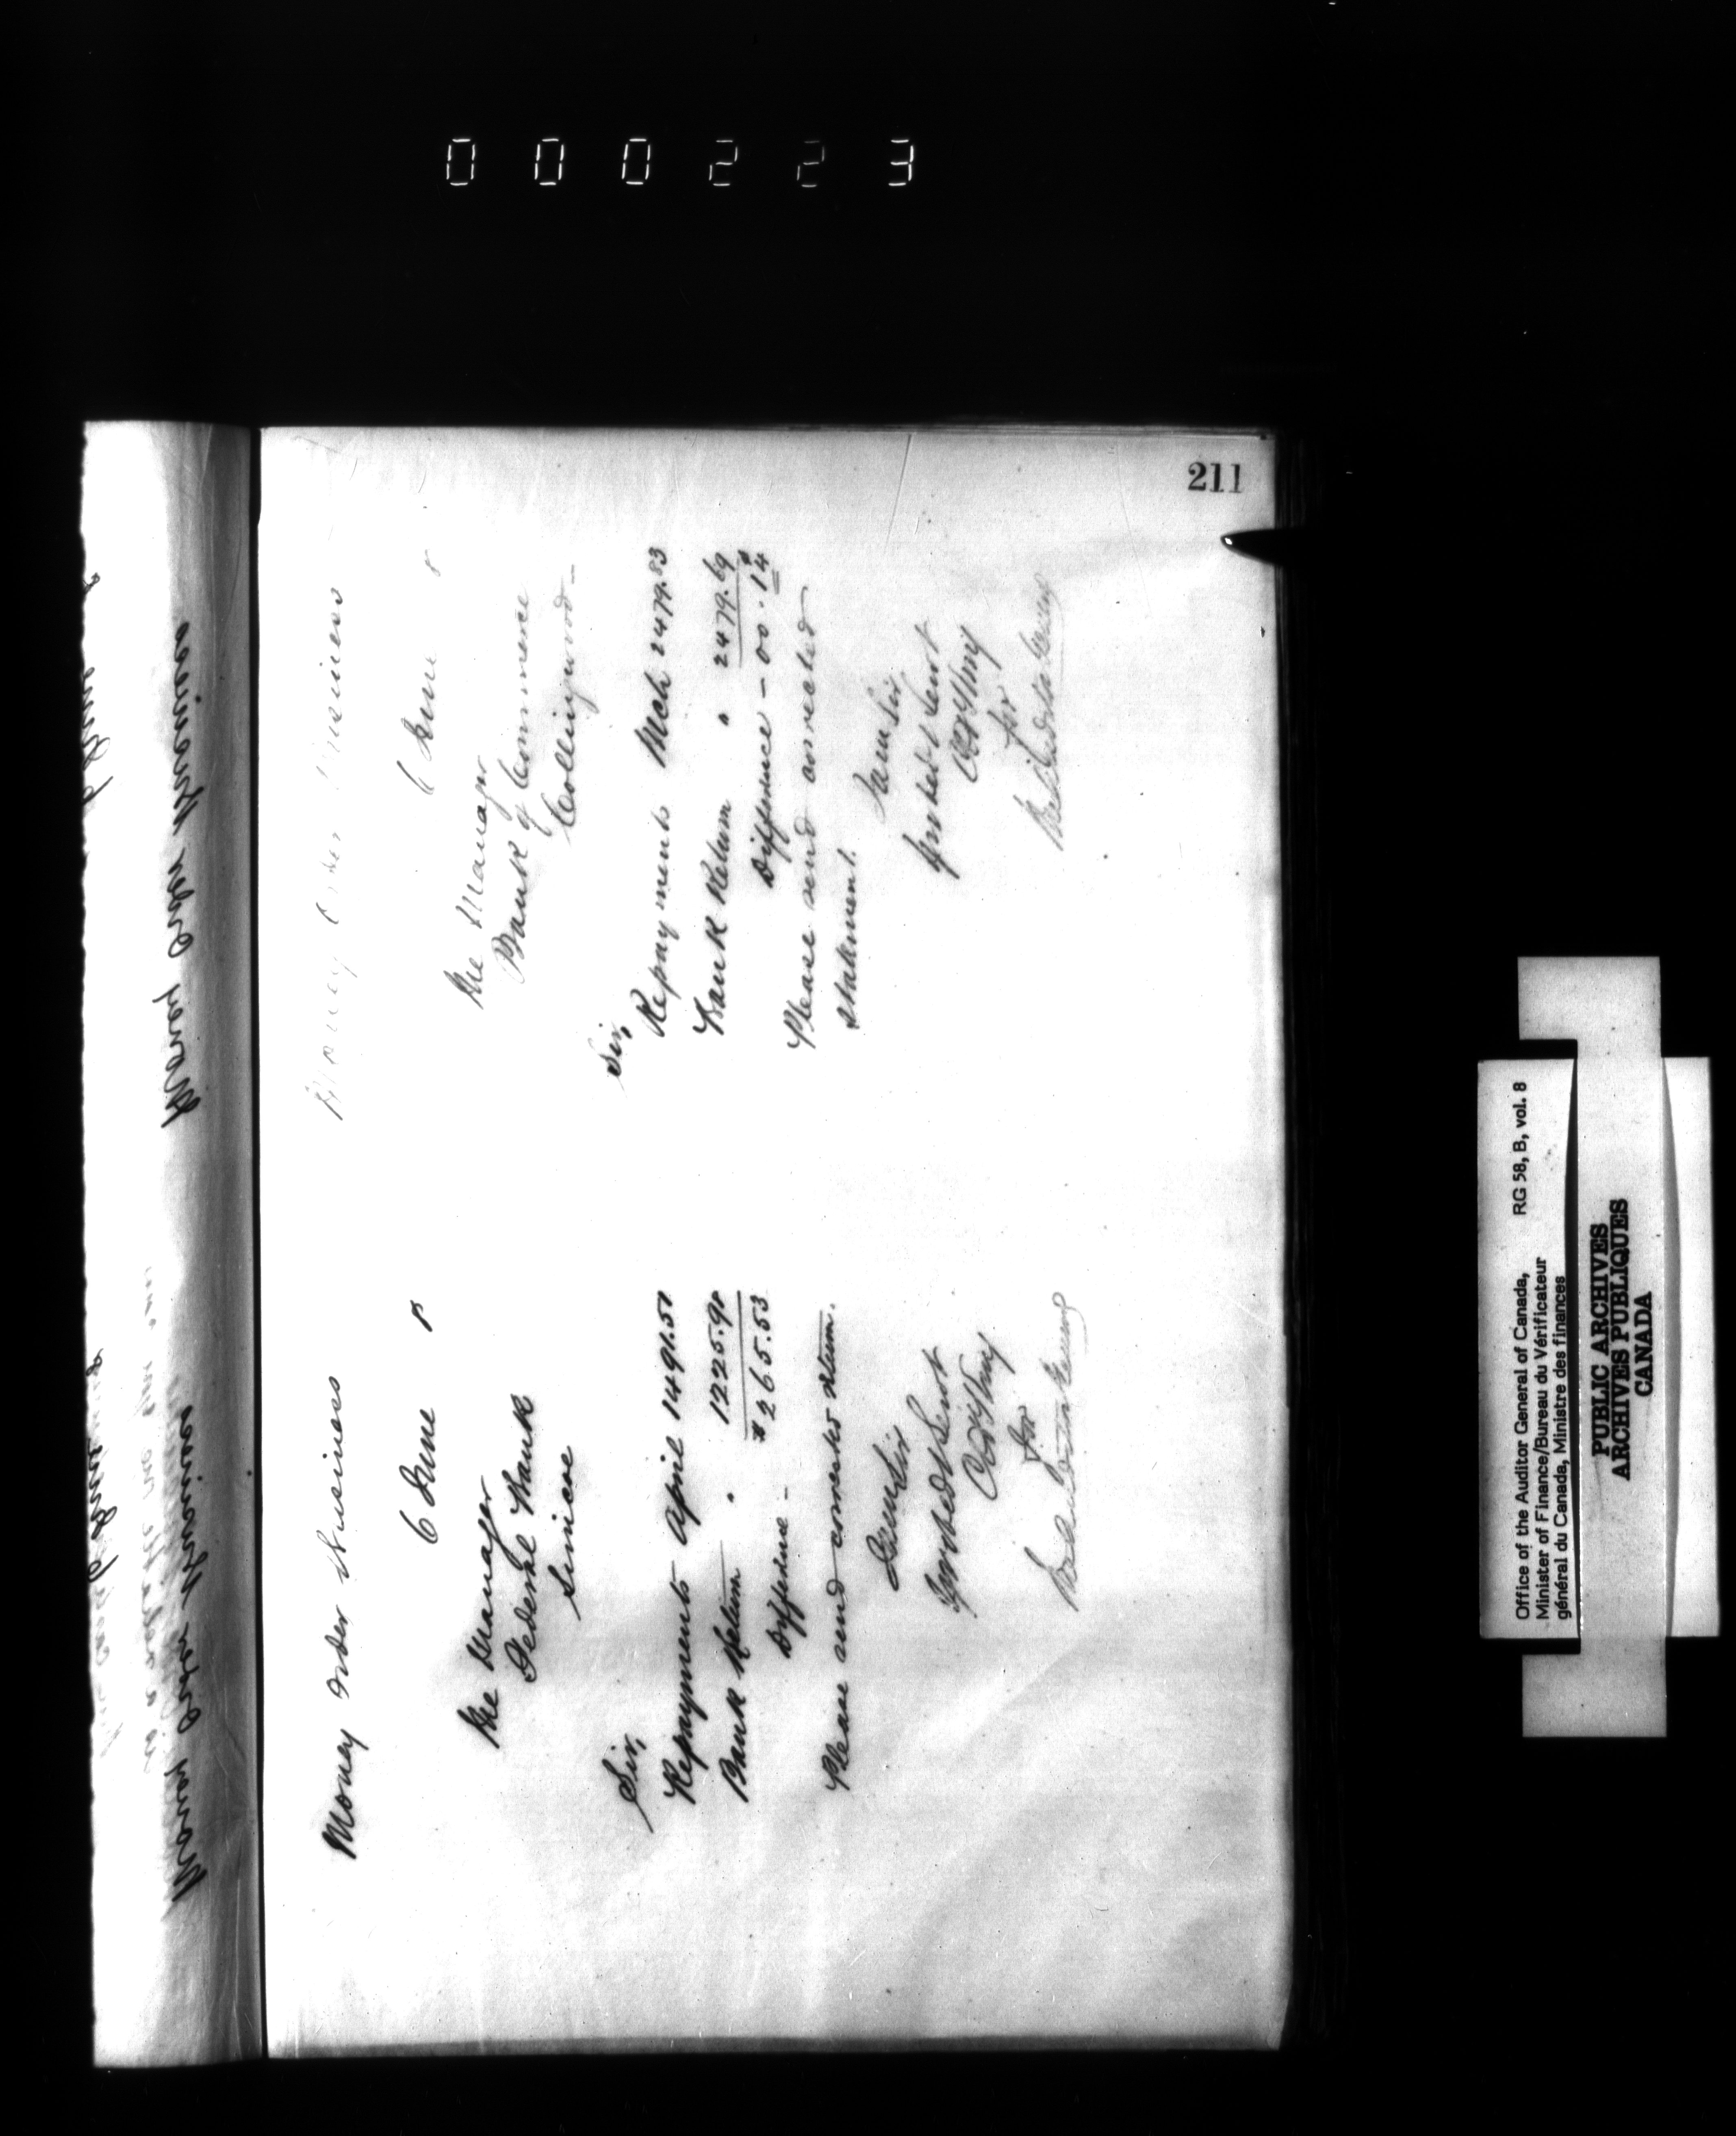 000223
211
Money Order Business
6 June 8
The Manager
Federal Bank
Simcoe
Sir,
Repayments April 1491.51
Bank Return " 1225.98
Difference - $265.53
Please send corrected return.
I am Sir
Your obedt Servt
for
Money Order Business
6 June 8
The Manager
Bank of Commerce
Collingwood -
Sir,
Repayments Mch 2479.83
Bank Return " 2479.69
Difference - 00.14
Please send corrected
statement.
I am Sir
Your obedt Servt
for
Money Order Business
Money Order Business
Office of the Auditor General of Canada, RG 58, B, vol. 8
Minister of Finance/Bureau du Vérificateur
général du Canada, Ministre des finances
PUBLIC ARCHIVES
ARCHIVES PUBLIQUES
CANADA